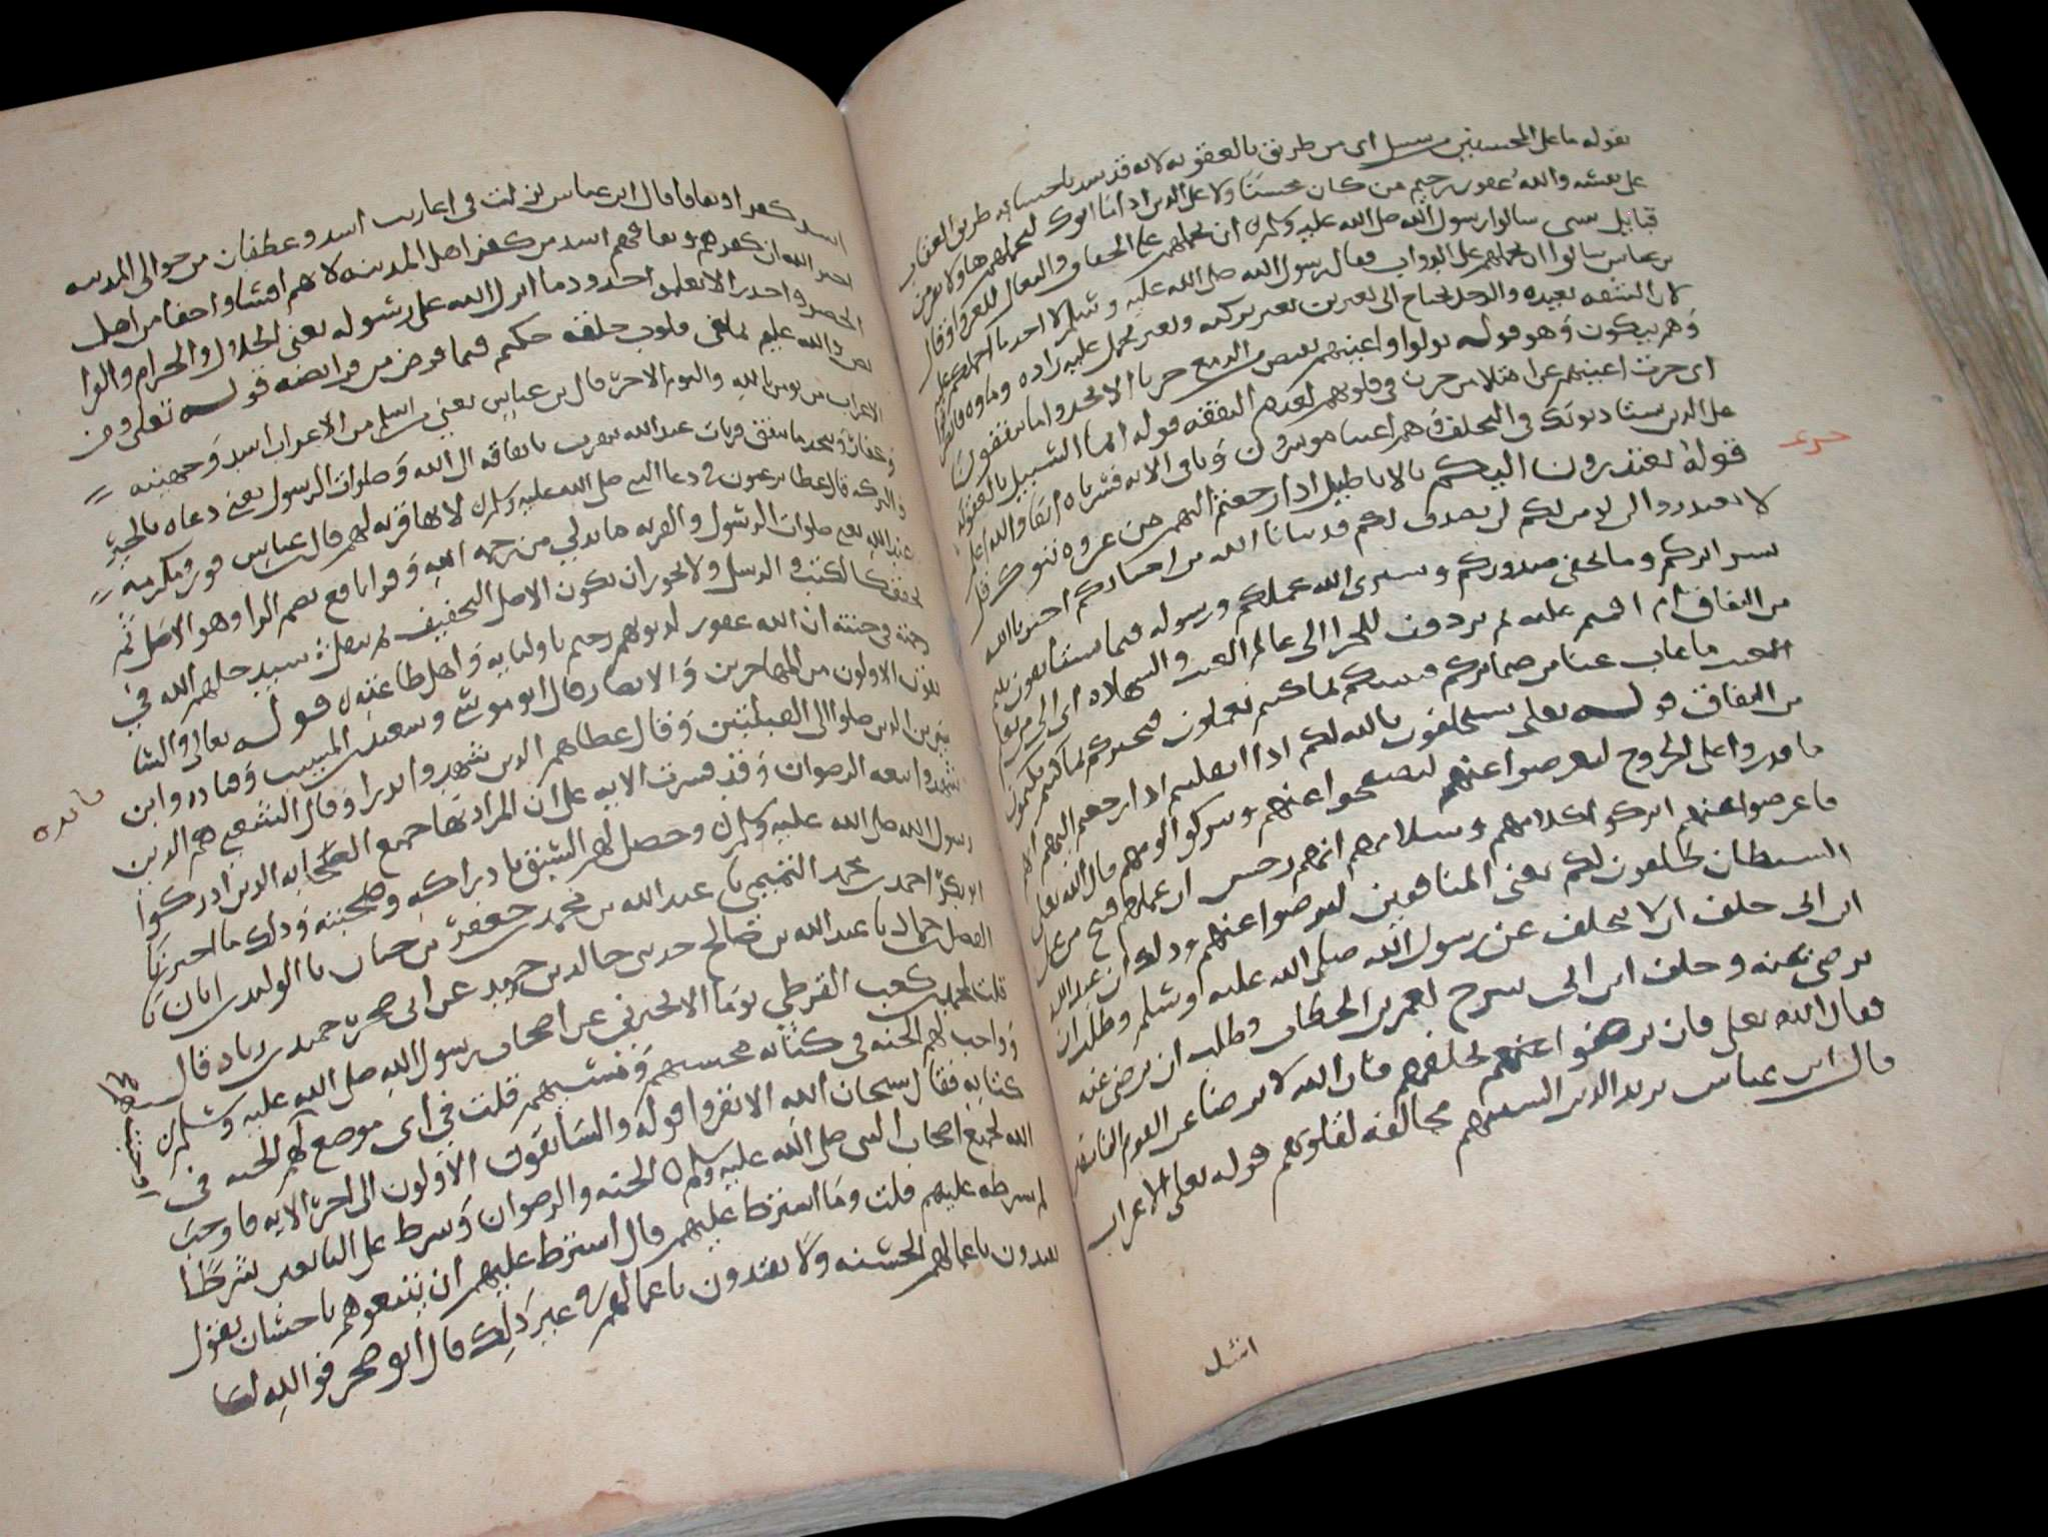 بقوله ما على المحسنين من سبيل اى من طريق بالعقوبه لانه قد سد باحسانه طريق العقاب
على نفسه والله غفور رحيم من كان محسنا ولا على الدين ادا ما اتوك لتحملهم
قبايل سى سالوا رسول الله صلى الله عليه وسلم ان يحملهم على الخفاف والنعال للغزو وقال
بن عباس سالوا ان يحملهم على الدواب فقال رسول الله صلى الله عليه وسلم لا اجد ما احملكم عليه
لان الشقه بعيده والرجل يحتاج الى بعيرين بعير يركبه وبعير يحمل عليه زاده وماوه
وهم يبكون وهو قوله تولوا واعينهم تفيض من الدمع حزنا الا يجدوا ما ينفقون
اى حزنت اعينهم عن امتلا من حزن فى قلوبهم لعدم النفقه قوله انما السبيل بالعقوبه
على الدين يستادنونك فى التخلف وهم اغنيا موسرون وباقى الايه فسرناه انفا والله اعلم
قوله يعتذرون اليكم بالاباطيل ادا رجعتم اليهم من غزوه تبوك قل
لا تعتدروا لن نومن لكم لن نصدق لكم قد نبانا الله من اخباركم اخبرنا الله
سرايركم وما تخفى صدوركم وسيرى الله عملكم ورسوله فيما تستانفون
من النفاق ام اقمتم عليه ثم تردون للجزا الى عالم الغيب والشهاده
الغيب ما غاب عنا من ضمايركم فينبيكم بما كنتم تعملون فيخبركم بما كنتم تكتمون
من النفاق قوله تعلى سيحلفون بالله لكم ادا انقلبتم ادا رجعتم اليهم
ما قدروا على الخروج لتعرضوا عنهم لتصفحوا عنهم وتتركوا لومهم قال الله تعلى
فاعرضوا عنهم اتركوا كلامهم وسلامهم انهم رجس ان عملهم قبيح من عمل
السيطان يحلفون لكم يعنى المنافقين لترضوا عنهم ودلك ان عبد الله
ابن ابى حلف ان لا يتخلف عن رسول الله صلى الله عليه وسلم وطلب ان
يرضى عنه وحلف ابن ابى سرح لعمر بن الخطاب وطلب ان يرضى عنه
فقال الله تعلى فان ترضوا عنهم لحلفهم فان الله لا يرضا عن القوم الفاسقين
قال ابن عباس يريد الدين السنتهم مخالفه لقلوبهم قوله تعلى الاعراب
اشد
اسد كفرا ونفاقا قال ابن عباس نزلت فى اعاريب اسد وغطفان من حوالى المدينه
اخبر الله ان كفرهم ونفاقهم اسد من كفر اهل المدينه لانهم اقسا واجفا من اهل
الحضر واجدر الا يعلموا حدود ما انزل الله على رسوله يعنى الحلال والحرام
والله عليم بما فى قلوب خلقه حكيم فيما فرض من فرايضه قوله تعلى ومن
الاعراب من يومن بالله واليوم الاخر قال بن عباس يعنى من اسلم من الاعراب اسد وجهينه
وغفار ويتخد ما ينفق قربات عند الله يتقرب بانفاقه الى الله وصلوات الرسول يعنى دعاه بالخير
والبركه قال عطا يرغبون فى دعا النبى صلى الله عليه وسلم الا انها قربه لهم قال بن عباس
عند الله صلوات الرسول والقربه ما يدنى من رحمه الله وقرا نافع بضم الرا وهو الاصل ثم
خفف كالكتب والرسل ولا يجوز ان يكون الاصل التخفيف ثم يثقل سيدخلهم الله فى
رحمته فى جنته ان الله غفور لذنوبهم رحيم باوليايه واهل طاعته قوله تعالى والسا
بقون الاولون من المهاجرين والانصار قال ابو موسى وسعيد بن المسيب وقتاده وابن
سيرين الدين صلوا الى القبلتين وقال عطا هم الدين شهدوا بدرا وقال الشعبى هم الدين
شهدوا بيعه الرضوان وقد فسرت الايه على ان المراد بها جميع الصحابه الدين ادركوا
رسول الله صلى الله عليه وسلم وحصل لهم السبق بادراكه وصحبته ودلك ما اخبرنا
ابو بكر احمد بن محمد التميمى نا عبد الله بن محمد بن جعفر بن حيان نا ابو الوليد بن ابان نا
الفضل بن حماد نا عبد الله بن صالح حدثنى خالد بن حميد عن ابى صخر حميد بن زياد قال
قلت لمحمد بن كعب القرظى يوما الا تخبرنى عن اصحاب رسول الله صلى الله عليه وسلم
واوجب لهم الجنه فى كتابه محسنهم ومسيهم قلت فى اى موضع لهم الجنه فى
كتابه فقال سبحان الله الا تقروا قوله والسابقون الاولون الى اخر الايه فاوجب
الله لجميع اصحاب النبى صلى الله عليه وسلم الجنه والرضوان وشرط على التابعين شرطا
لم يشرطه عليهم قلت وما اشترط عليهم قال اشترط عليهم ان يتبعوهم باحسان يقول
يقتدون باعمالهم الحسنه ولا يقتدون باعمالهم فى غير ذلك قال ابو صخر فوالله